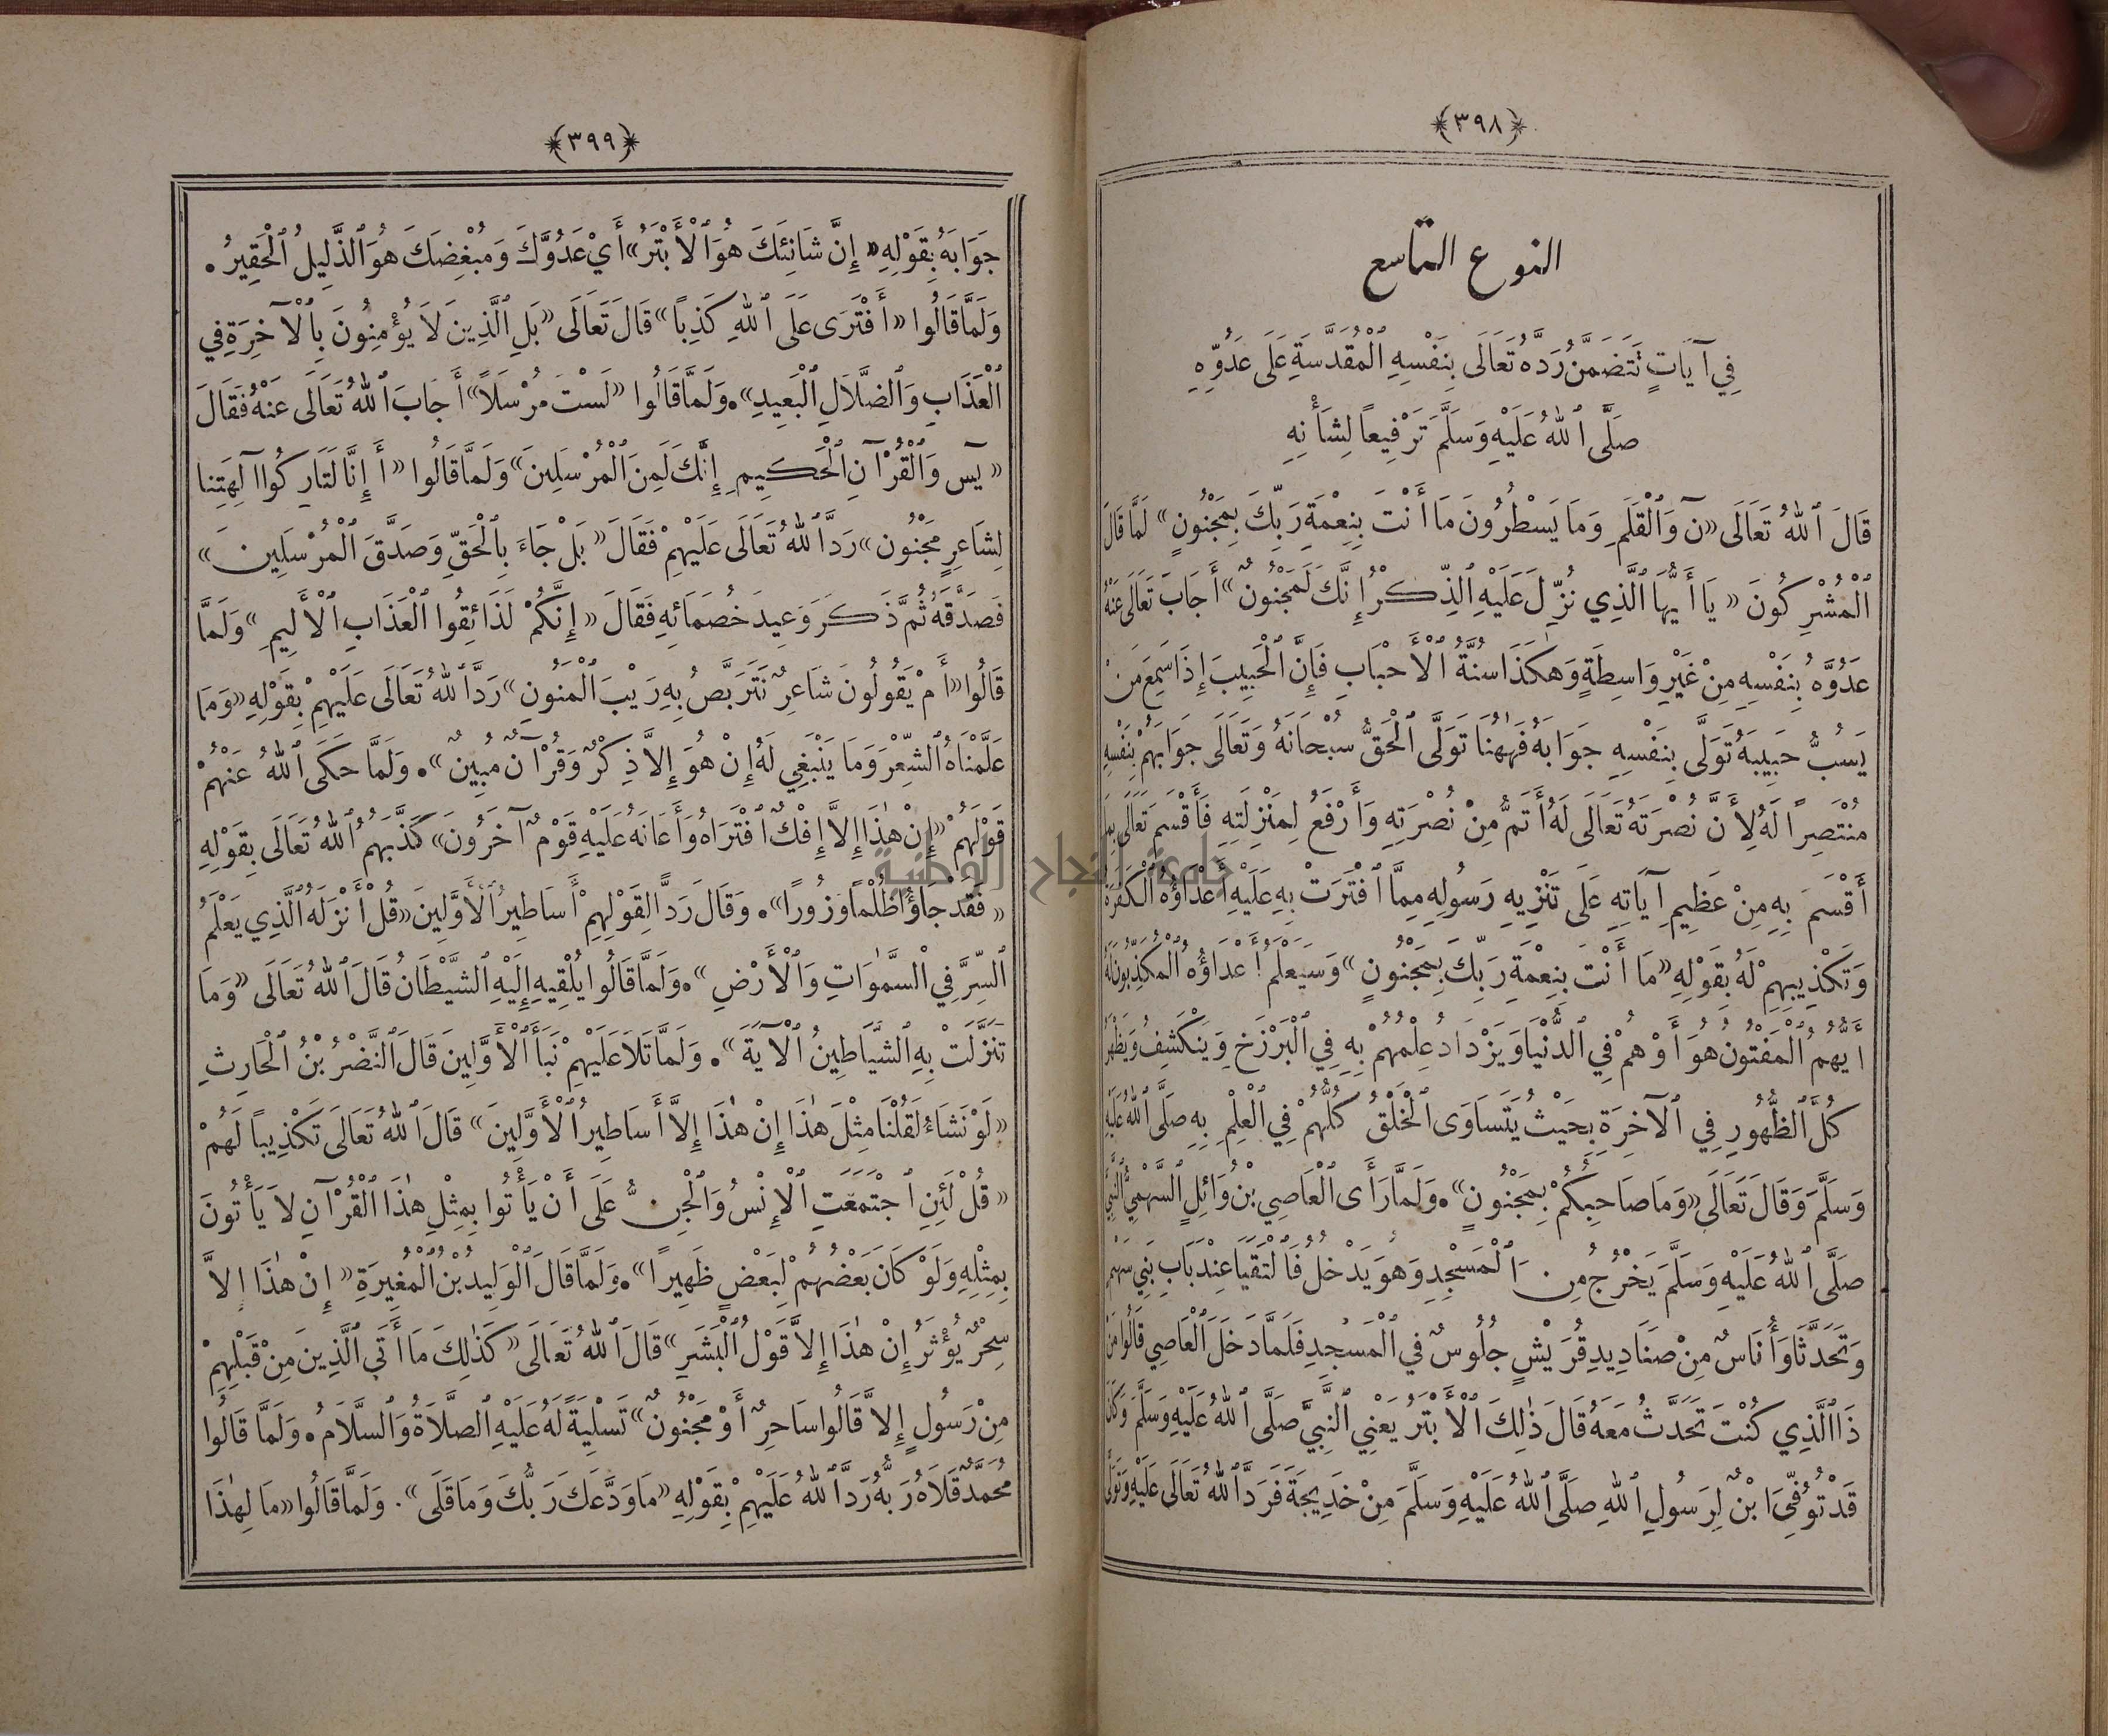 ﴿٣٩٨﴾
النوع التاسع
فِي آيَاتٍ تَتَضَمَّنُ رَدَّهُ تَعَالَى بِنَفْسِهِ الْمُقَدَّسَةِ عَلَى عَدُوِّهِ
صَلَّى اللهُ عَلَيْهِ وَسَلَّمَ تَرْفِيعاً لِشَأْنِهِ
قَالَ اللهُ تَعَالَى «نۤ وَالْقَلَمِ وَمَا يَسْطُرُونَ مَا أَنْتَ بِنِعْمَةِ رَبِّكَ بِمَجْنُونٍ» لَمَّا قَالَ
الْمُشْرِكُونَ «يَا أَيُّهَا الَّذِي نُزِّلَ عَلَيْهِ الذِّكْرُ إِنَّكَ لَمَجْنُونٌ» أَجَابَ تَعَالَى عَنْهُ
عَدُوَّهُ بِنَفْسِهِ مِنْ غَيْرِ وَاسِطَةٍ وَهٰكَذَا سُنَّةُ الْأَحْبَابِ فَإِنَّ الْحَبِيبَ إِذَا سَمِعَ مَنْ
يَسُبُّ حَبِيبَهُ تَوَلَّى بِنَفْسِهِ جَوَابَهُ فَهٰهُنَا تَوَلَّى الْحَقُّ سُبْحَانَهُ وَتَعَالَى جَوَابَهُمْ بِنَفْسِهِ
مُنْتَصِراً لَهُ لِأَنَّ نُصْرَتَهُ تَعَالَى لَهُ أَتَمُّ مِنْ نُصْرَتِهِ وَأَرْفَعُ لِمَنْزِلَتِهِ فَأَقْسَمَ تَعَالَى بِمَا
أَقْسَمَ بِهِ مِنْ عَظِيمِ آيَاتِهِ عَلَى تَنْزِيهِ رَسُولِهِ مِمَّا افْتَرَتْ بِهِ عَلَيْهِ أَعْدَاؤُهُ الْكَفَرَةُ
وَتَكْذِيبِهِمْ لَهُ بِقَوْلِهِ «مَا أَنْتَ بِنِعْمَةِ رَبِّكَ بِمَجْنُونٍ» وَسَيَعْلَمُ أَعْدَاؤُهُ الْمُكَذِّبُونَ لَهُ
أَيُّهُمُ الْمَفْتُونُ هُوَ أَوْ هُمْ فِي الدُّنْيَا وَيَزْدَادُ عِلْمُهُمْ بِهِ فِي الْبَرْزَخِ وَيَنْكَشِفُ وَيَظْهَرُ
كُلَّ الظُّهُورِ فِي الْآخِرَةِ بِحَيْثُ يَتَسَاوَى الْخَلْقُ كُلُّهُمْ فِي الْعِلْمِ بِهِ صَلَّى اللهُ عَلَيْهِ
وَسَلَّمَ وَقَالَ تَعَالَى «وَمَا صَاحِبُكُمْ بِمَجْنُونٍ» • وَلَمَّا رَأَى الْعَاصِي بْنُ وَائِلٍ السَّهْمِيُّ النَّبِيَّ
صَلَّى اللهُ عَلَيْهِ وَسَلَّمَ يَخْرُجُ مِنَ الْمَسْجِدِ وَهُوَ يَدْخُلُ فَالْتَقَيَا عِنْدَ بَابِ بَنِي سَهْمٍ
وَتَحَدَّثَا وَأُنَاسٌ مِنْ صَنَادِيدِ قُرَيْشٍ جُلُوسٌ فِي الْمَسْجِدِ فَلَمَّا دَخَلَ الْعَاصِي قَالُوا مَنْ
ذَا الَّذِي كُنْتَ تَحَدَّثُ مَعَهُ قَالَ ذٰلِكَ الْأَبْتَرُ يَعْنِي النَّبِيَّ صَلَّى اللهُ عَلَيْهِ وَسَلَّمَ وَكَانَ
قَدْ تُوُفِّيَ ابْنٌ لِرَسُولِ اللهِ صَلَّى اللهُ عَلَيْهِ وَسَلَّمَ مِنْ خَدِيجَةَ فَرَدَّ اللهُ تَعَالَى عَلَيْهِ وَتَوَلَّى
﴿٣٩٩﴾
جَوَابَهُ بِقَوْلِهِ «إِنَّ شَانِئَكَ هُوَ الْأَبْتَرُ» أَيْ عَدُوَّكَ وَمُبْغِضَكَ هُوَ الذَّلِيلُ الْحَقِيرُ •
وَلَمَّا قَالُوا «أَفْتَرَى عَلَى اللهِ كَذِباً» قَالَ تَعَالَى «بَلِ الَّذِينَ لَا يُؤْمِنُونَ بِالْآخِرَةِ فِي
الْعَذَابِ وَالضَّلَالِ الْبَعِيدِ» • وَلَمَّا قَالُوا «لَسْتَ مُرْسَلاً» أَجَابَ اللهُ تَعَالَى عَنْهُ فَقَالَ
«يۤس وَالْقُرْآنِ الْحَكِيمِ إِنَّكَ لَمِنَ الْمُرْسَلِينَ» وَلَمَّا قَالُوا «أَإِنَّا لَتَارِكُوا آلِهَتِنَا
لِشَاعِرٍ مَجْنُونٍ» رَدَّ اللهُ تَعَالَى عَلَيْهِمْ فَقَالَ «بَلْ جَاءَ بِالْحَقِّ وَصَدَّقَ الْمُرْسَلِينَ»
فَصَدَّقَهُ ثُمَّ ذَكَرَ وَعِيدَ خُصَمَائِهِ فَقَالَ «إِنَّكُمْ لَذَائِقُوا الْعَذَابِ الْأَلِيمِ» وَلَمَّا
قَالُوا «أَمْ يَقُولُونَ شَاعِرٌ نَتَرَبَّصُ بِهِ رَيْبَ الْمَنُونِ» رَدَّ اللهُ تَعَالَى عَلَيْهِمْ بِقَوْلِهِ «وَمَا
عَلَّمْنَاهُ الشِّعْرَ وَمَا يَنْبَغِي لَهُ إِنْ هُوَ إِلَّا ذِكْرٌ وَقُرْآنٌ مُبِينٌ» • وَلَمَّا حَكَى اللهُ عَنْهُمْ
قَوْلَهُمْ «إِنْ هٰذَا إِلَّا إِفْكٌ افْتَرَاهُ وَأَعَانَهُ عَلَيْهِ قَوْمٌ آخَرُونَ» كَذَّبَهُمُ اللهُ تَعَالَى بِقَوْلِهِ
«فَقَدْ جَاؤُا ظُلْماً وَزُوراً» • وَقَالَ رَدًّا لِقَوْلِهِمْ أَسَاطِيرُ الْأَوَّلِينَ «قُلْ أَنْزَلَهُ الَّذِي يَعْلَمُ
السِّرَّ فِي السَّمٰوَاتِ وَالْأَرْضِ» • وَلَمَّا قَالُوا يُلْقِيهِ إِلَيْهِ الشَّيْطَانُ قَالَ اللهُ تَعَالَى «وَمَا
تَنَزَّلَتْ بِهِ الشَّيَاطِينُ الْآيَةَ» • وَلَمَّا تَلَا عَلَيْهِمْ نَبَأَ الْأَوَّلِينَ قَالَ النَّضْرُ بْنُ الْحَارِثِ
«لَوْ نَشَاءُ لَقُلْنَا مِثْلَ هٰذَا إِنْ هٰذَا إِلَّا أَسَاطِيرُ الْأَوَّلِينَ» قَالَ اللهُ تَعَالَى تَكْذِيباً لَهُمْ
«قُلْ لَئِنِ اجْتَمَعَتِ الْإِنْسُ وَالْجِنُّ عَلَى أَنْ يَأْتُوا بِمِثْلِ هٰذَا الْقُرْآنِ لَا يَأْتُونَ
بِمِثْلِهِ وَلَوْ كَانَ بَعْضُهُمْ لِبَعْضٍ ظَهِيراً» • وَلَمَّا قَالَ الْوَلِيدُ بْنُ الْمُغِيرَةِ «إِنْ هٰذَا إِلَّا
سِحْرٌ يُؤْثَرُ إِنْ هٰذَا إِلَّا قَوْلُ الْبَشَرِ» قَالَ اللهُ تَعَالَى «كَذٰلِكَ مَا أَتَى الَّذِينَ مِنْ قَبْلِهِمْ
مِنْ رَسُولٍ إِلَّا قَالُوا سَاحِرٌ أَوْ مَجْنُونٌ» تَسْلِيَةً لَهُ عَلَيْهِ الصَّلَاةُ وَالسَّلَامُ • وَلَمَّا قَالُوا
مُحَمَّدٌ قَلَاهُ رَبُّهُ رَدَّ اللهُ عَلَيْهِمْ بِقَوْلِهِ «مَا وَدَّعَكَ رَبُّكَ وَمَا قَلَى» • وَلَمَّا قَالُوا «مَا لِهٰذَا
جامعة النجاح الوطنية